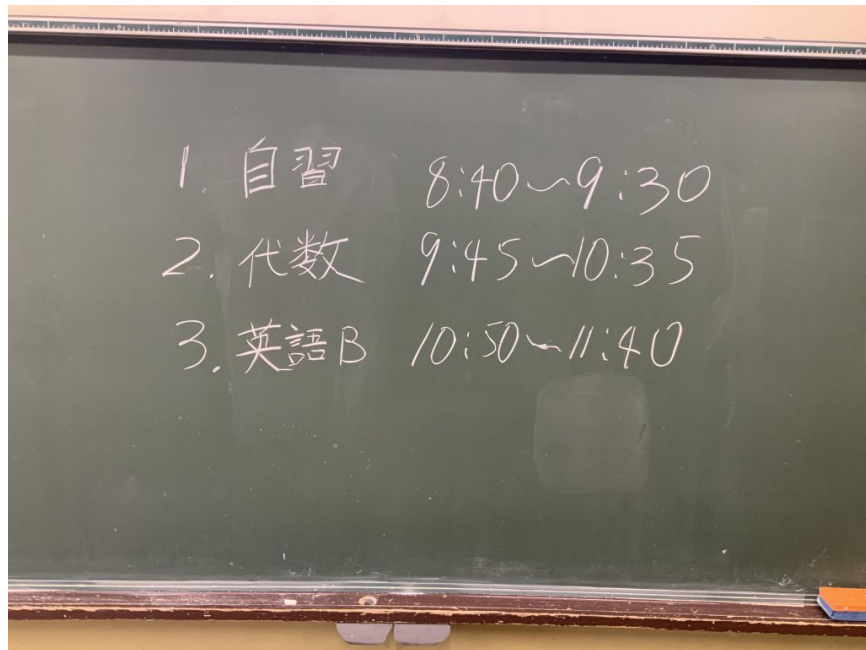 1. 自習 8:40〜9:30
2. 代数 9:45〜10:35
3. 英語B 10:50〜11:40